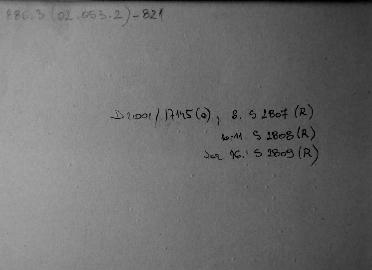 886.3(02.053.2)-821
D 2001/17145(a), 8. S 2807 (R)
10.-11. S 2808 (R)
16.: S 2809 (R)